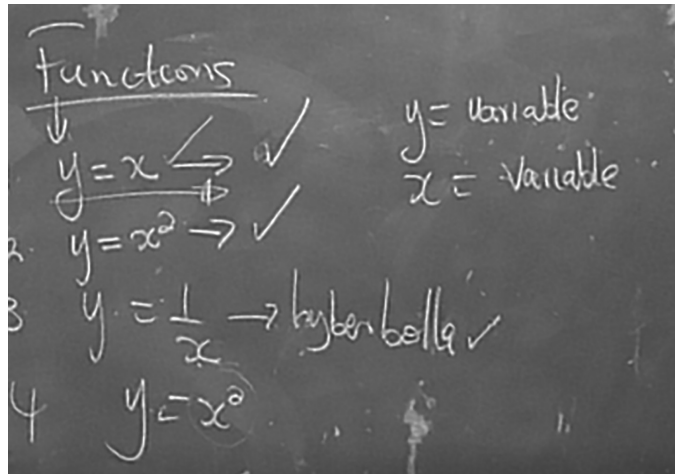 Functions
y = x → ✓
2. y = x² → ✓
3 y = 1/x → hyberbolla ✓
4 y = x²
y = variable
x = variable